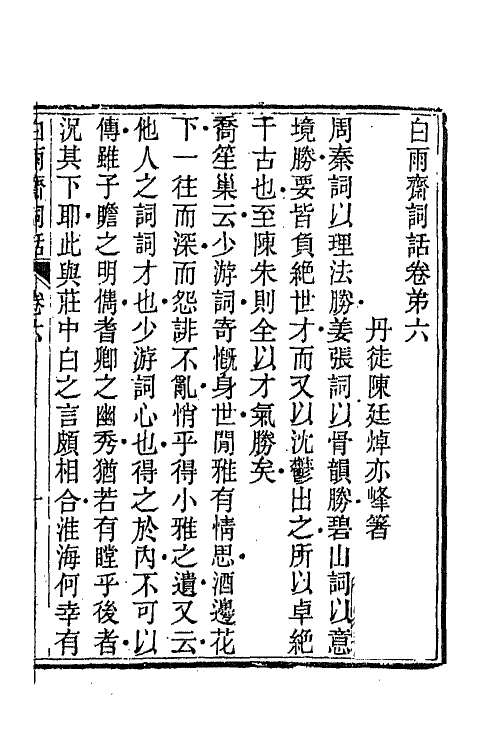 白雨齋詞話卷第六
丹徒陳廷焯亦峰箸
周秦詞以理法勝姜張詞以骨韻勝碧山詞以意
境勝要皆負絕世才而又以沈鬱出之所以卓絕
千古也至陳朱則全以才氣勝矣
喬笙巢云少游詞寄慨身世閒雅有情思酒邊花
下一往而深而怨誹不亂悄乎得小雅之遺又云
他人之詞詞才也少游詞心也得之於內不可以
傳雖子瞻之明儁耆卿之幽秀猶若有瞠乎後者
況其下耶此與莊中白之言頗相合淮海何幸有
白雨齋詞話 卷六